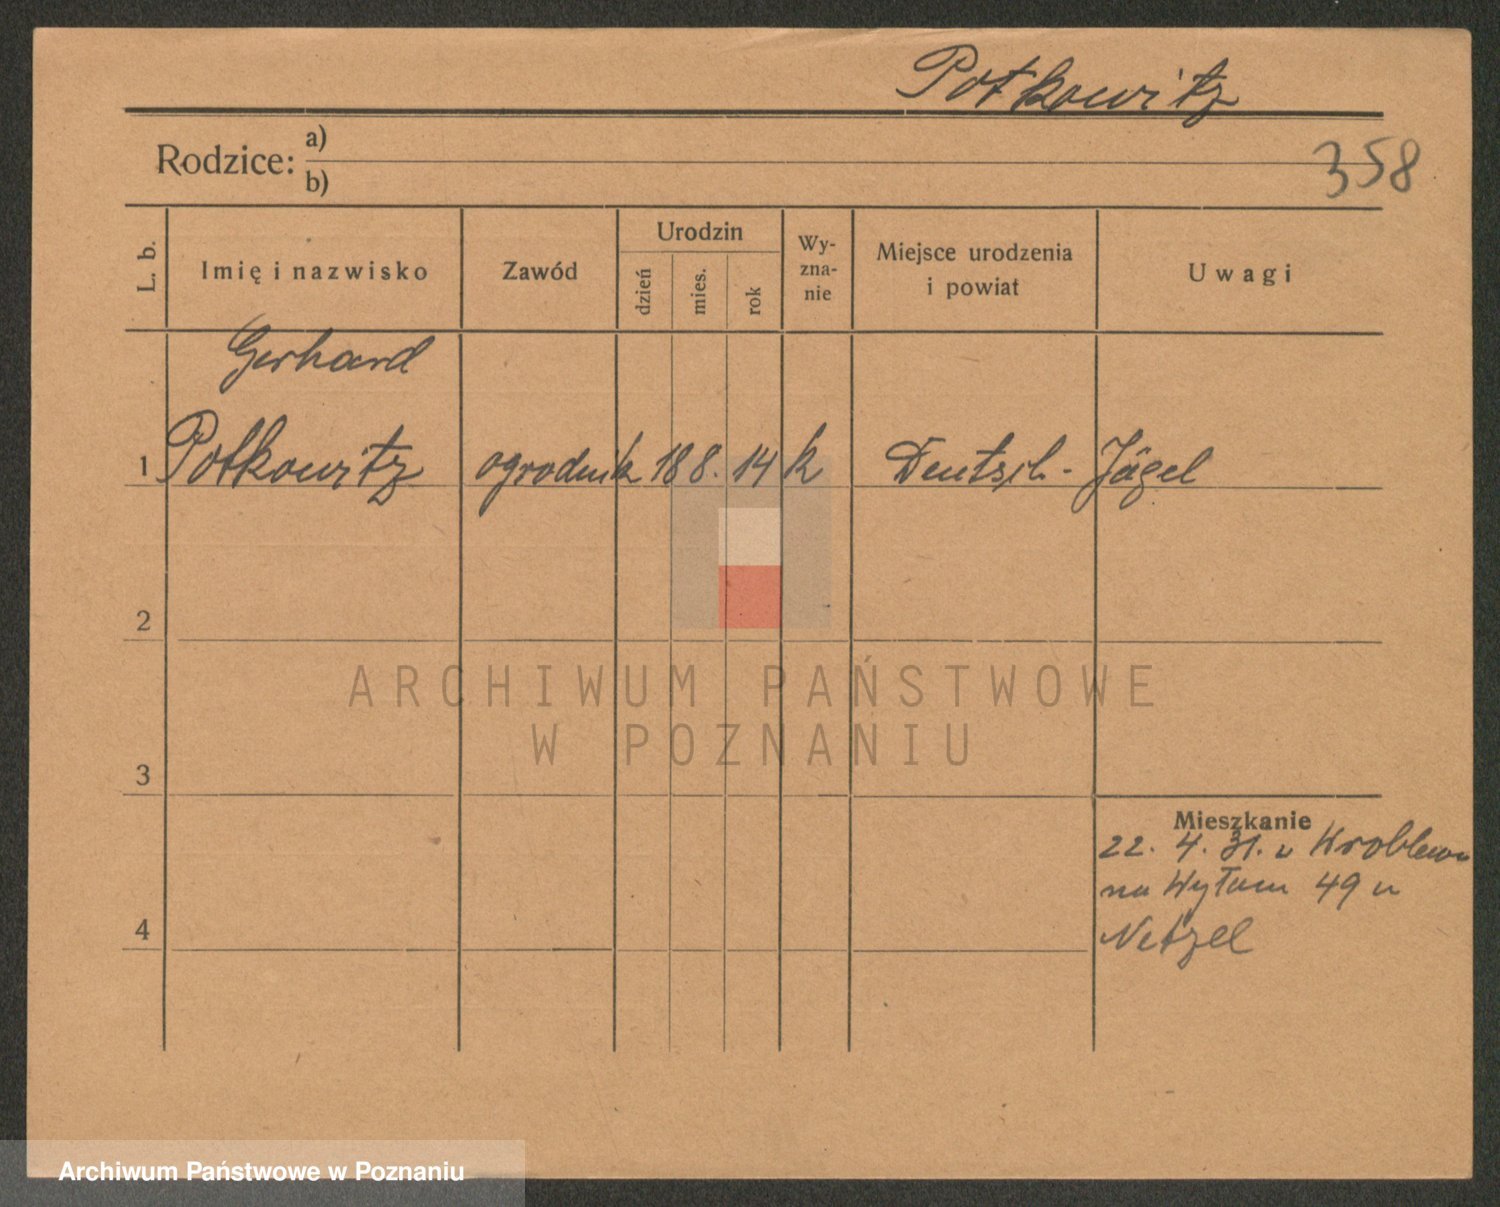 Potkowitz
Rodzice: a)
b)
358
L. b. Imię i nazwisko Zawód Urodzin dzień mies. rok Wy-zna-nie Miejsce urodzenia i powiat Uwagi
Gerhard
1 Potkowitz ogrodnik 18 8. 14 k Deutsch-Jägel
2
ARCHIWUM PAŃSTWOWE
W POZNANIU
3
Mieszkanie
22. 4. 31. z Kroblewa
na Wyłom 49 u
4
Netzel
Archiwum Państwowe w Poznaniu